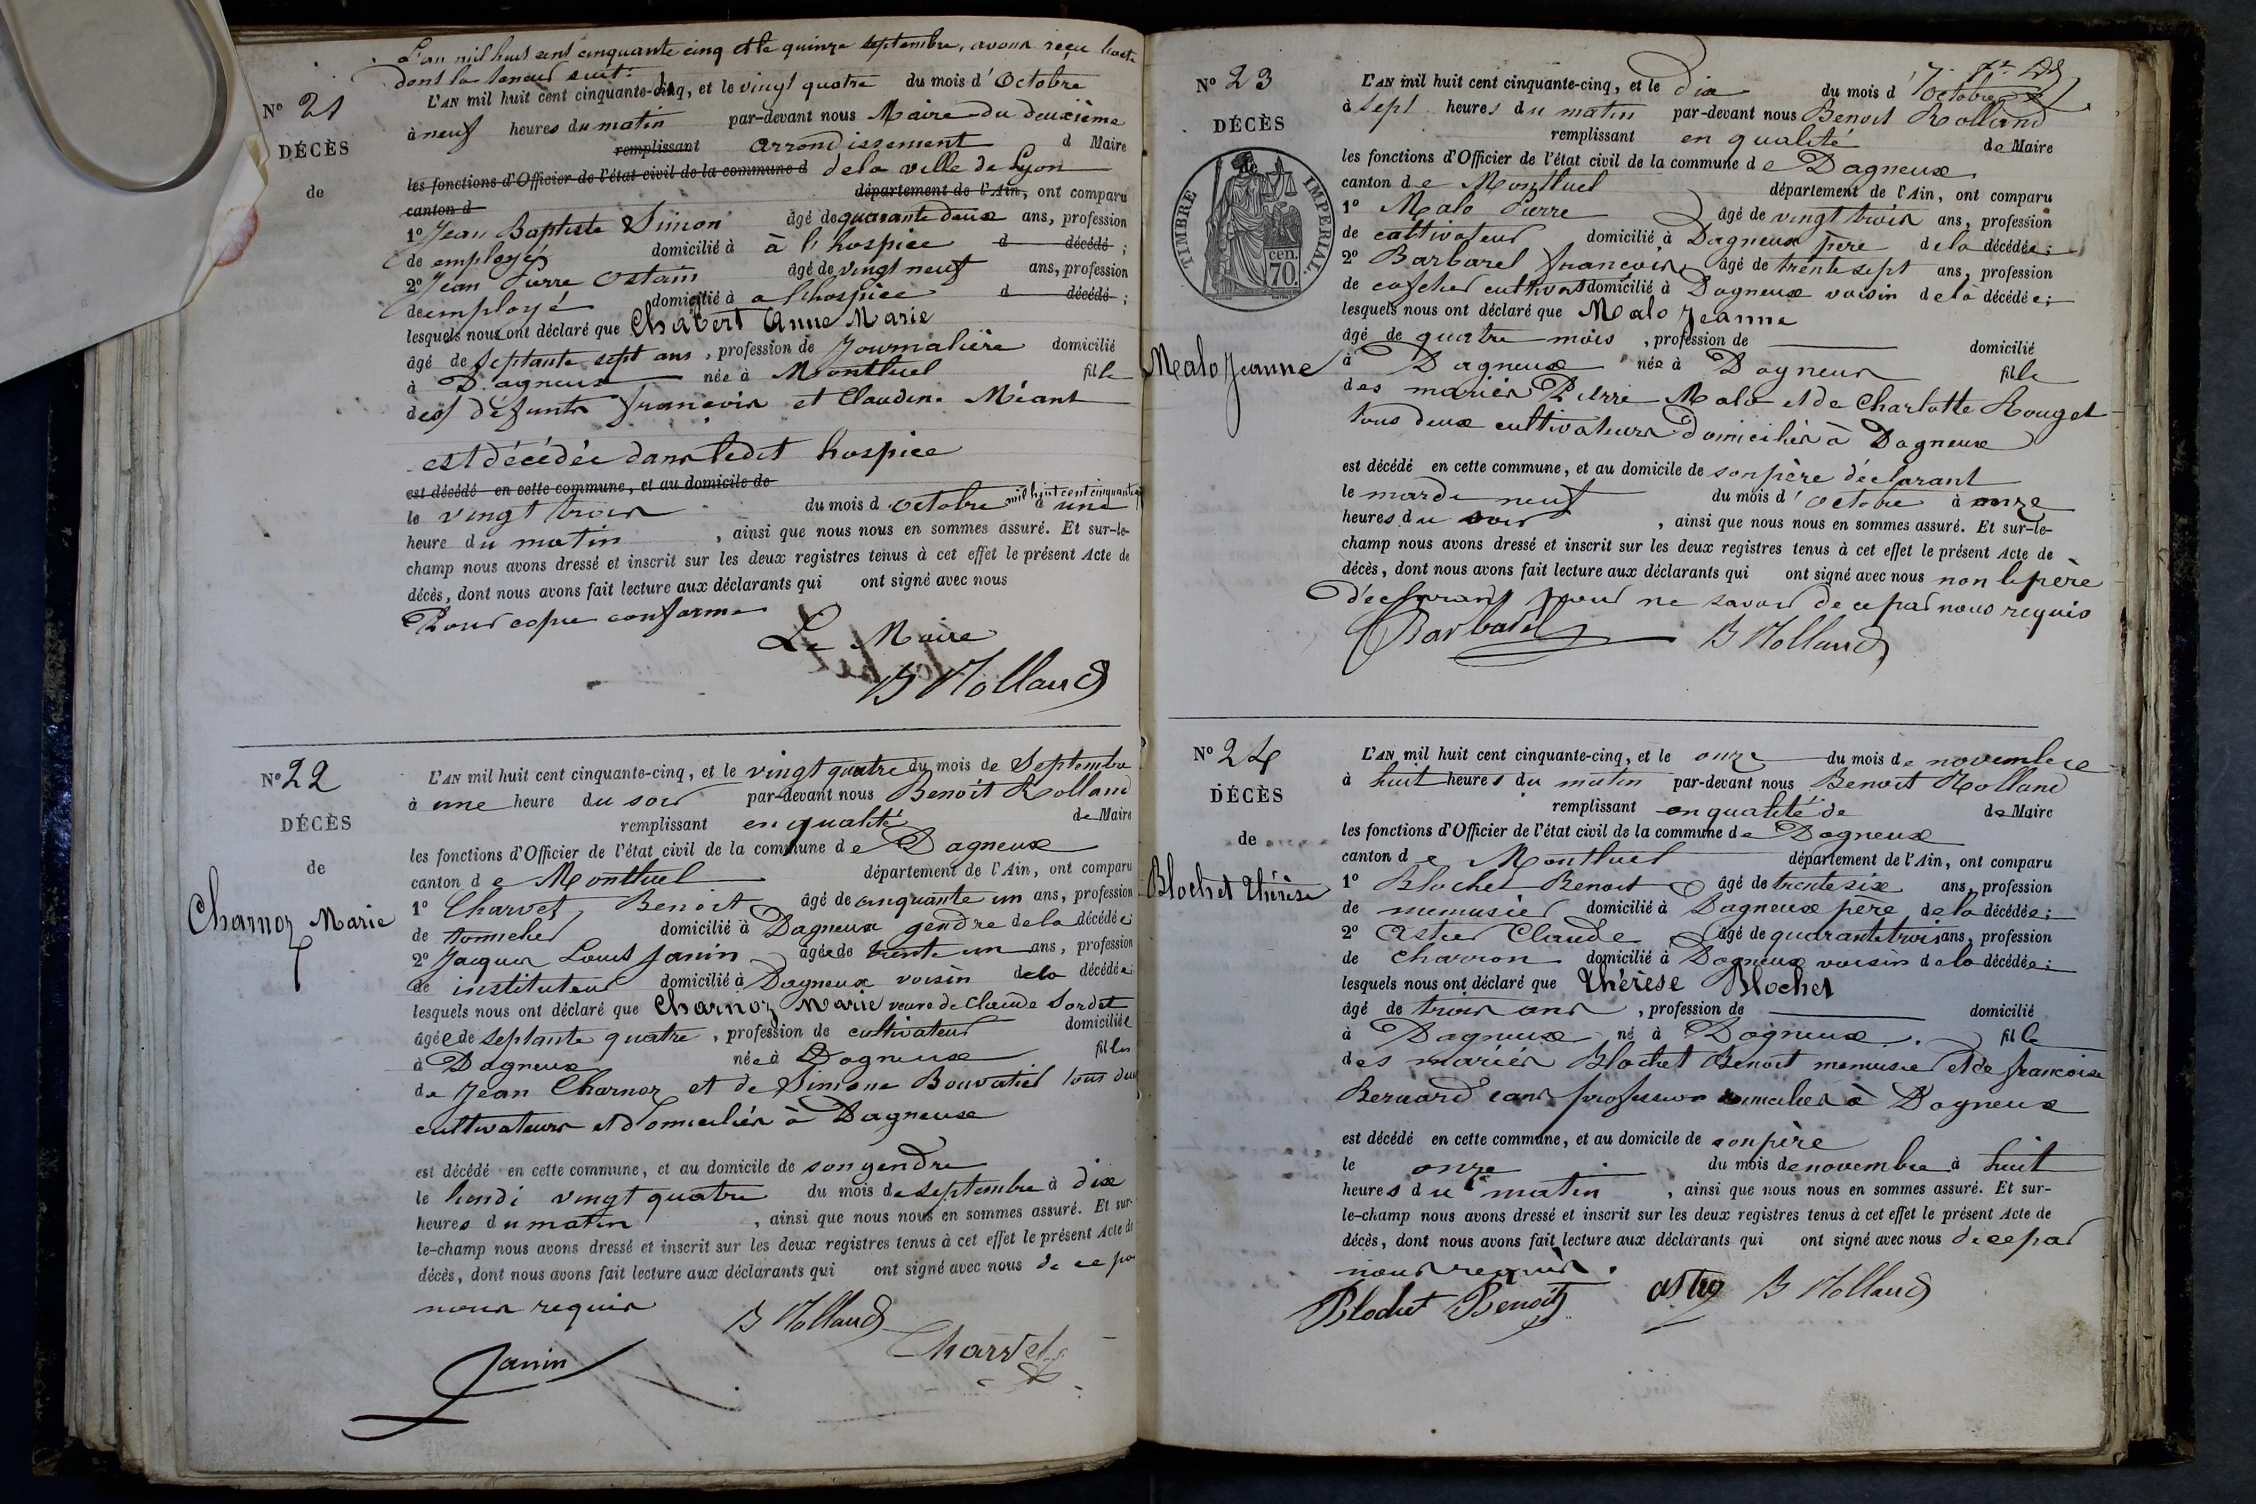 L'an mil huit cent cinquante cinq et le quinze septembre, avons reçu l'acte
dont la teneur suit:
N° 21
DÉCÈS
de
L'AN mil huit cent cinquante-cinq, et le vingt quatre du mois d'Octobre
à neuf heures du matin par-devant nous Maire du deuxième
remplissant arrondissement d Maire
les fonctions d'Officier de l'état civil de la commune d de la ville de Lyon
canton d département de l'Ain, ont comparu
1° Jean Baptiste Simon âgé de quarante deux ans, profession
de employé domicilié à à l'hospice d décédé ;
2° Jean Pierre Ostain âgé de vingt neuf ans, profession
de employé domicilié à a l'hospice d décédé ;
lesquels nous ont déclaré que Chabert Anne Marie
âgé de septante sept ans, profession de Journalière domicilié
à Dagneux née à Montluel fille
des défunts françois et Claudine Méant
est décédée dans ledit hospice
est décédé en cette commune, et au domicile de
le vingt trois du mois d octobre mil huit cent cinquante à une
heure du matin, ainsi que nous nous en sommes assuré. Et sur-le-
champ nous avons dressé et inscrit sur les deux registres tenus à cet effet le présent Acte de
décès, dont nous avons fait lecture aux déclarants qui ont signé avec nous
Pour copie conforme
Le Maire
B Rolland
N° 22
DÉCÈS
de
Charnoz Marie
L'AN mil huit cent cinquante-cinq, et le vingt quatre du mois de Septembre
à une heure du soir par-devant nous Benoit Rolland
remplissant en qualité de Maire
les fonctions d'Officier de l'état civil de la commune de Dagneux
canton de Montluel département de l'Ain, ont comparu
1° Charvet Benoit âgé de cinquante un ans, profession
de tonnelier domicilié à Dagneux gendre de la décédée
2° Jacques Louis Janin âgée de trente un ans, profession
de instituteur domicilié à Dagneux voisin dela décédée
lesquels nous ont déclaré que Charnoz Marie veuve de Claude Sordet
âgée de septante quatre, profession de cultivateur domiciliée
à Dagneux née à Dagneux fille
de Jean Charnoz et de Simone Bouvatier tous deux
cultivateurs et domiciliés à Dagneux
est décédé en cette commune, et au domicile de son gendre
le lundi vingt quatre du mois de septembre à dix
heures du matin, ainsi que nous nous en sommes assuré. Et sur-
le-champ nous avons dressé et inscrit sur les deux registres tenus à cet effet le présent Acte de
décès, dont nous avons fait lecture aux déclarants qui ont signé avec nous de ce par
nous requis
B Rolland
Charvet
Janin
N° 23
DÉCÈS
TIMBRE IMPERIAL
cen.
70.
Malo Jeanne
L'AN mil huit cent cinquante-cinq, et le dix du mois d'octobre
à sept heures du matin par-devant nous Benoit Rolland
remplissant en qualité de Maire
les fonctions d'Officier de l'état civil de la commune de Dagneux
canton de Montluel département de l'Ain, ont comparu
1° Malo Pierre âgé de vingt trois ans, profession
de cultivateur domicilié à Dagneux père dela décédée;
2° Barbarel françois âgé de trente sept ans, profession
de domicilié à Dagneux voisin dela décédée;
lesquels nous ont déclaré que Malo Jeanne
âgé de quatre mois, profession de domicilié
à Dagneux née à Dagneux fille
des mariés Pierre Malo et de Charlotte Rouget
tous deux cultivateurs domiciliés à Dagneux
est décédé en cette commune, et au domicile de son père déclarant
le mardi neuf du mois d'octobre à onze
heures du soir, ainsi que nous nous en sommes assuré. Et sur-le-
champ nous avons dressé et inscrit sur les deux registres tenus à cet effet le présent Acte de
décès, dont nous avons fait lecture aux déclarants qui ont signé avec nous non le père
déclarant pour ne savoir de ce par nous requis
Barbarel B Rolland
N° 24
DÉCÈS
de
Blochet Thérèse
L'AN mil huit cent cinquante-cinq, et le onze du mois de novembre
à huit heures du matin par-devant nous Benoit Rolland
remplissant en qualité de de Maire
les fonctions d'Officier de l'état civil de la commune de Dagneux
canton de Montluel département de l'Ain, ont comparu
1° Blochet Benoit âgé de trente six ans, profession
de menusier domicilié à Dagneux père dela décédée;
2° Astier Claude âgé de quarante trois ans, profession
de charron domicilié à Dagneux voisin dela décédée;
lesquels nous ont déclaré que Thérèse Blochet
âgé de trois ans, profession de domicilié
à Dagneux né à Dagneux. fille
des mariés Blochet Benoit menusier et de francoise
Bernard sans profession domiciliés à Dagneux
est décédé en cette commune, et au domicile de son père
le onze du mois de novembre à huit
heures du matin, ainsi que nous nous en sommes assuré. Et sur-
le-champ nous avons dressé et inscrit sur les deux registres tenus à cet effet le présent Acte de
décès, dont nous avons fait lecture aux déclarants qui ont signé avec nous de ce par
nous requis.
Blochet Benoit B Rolland